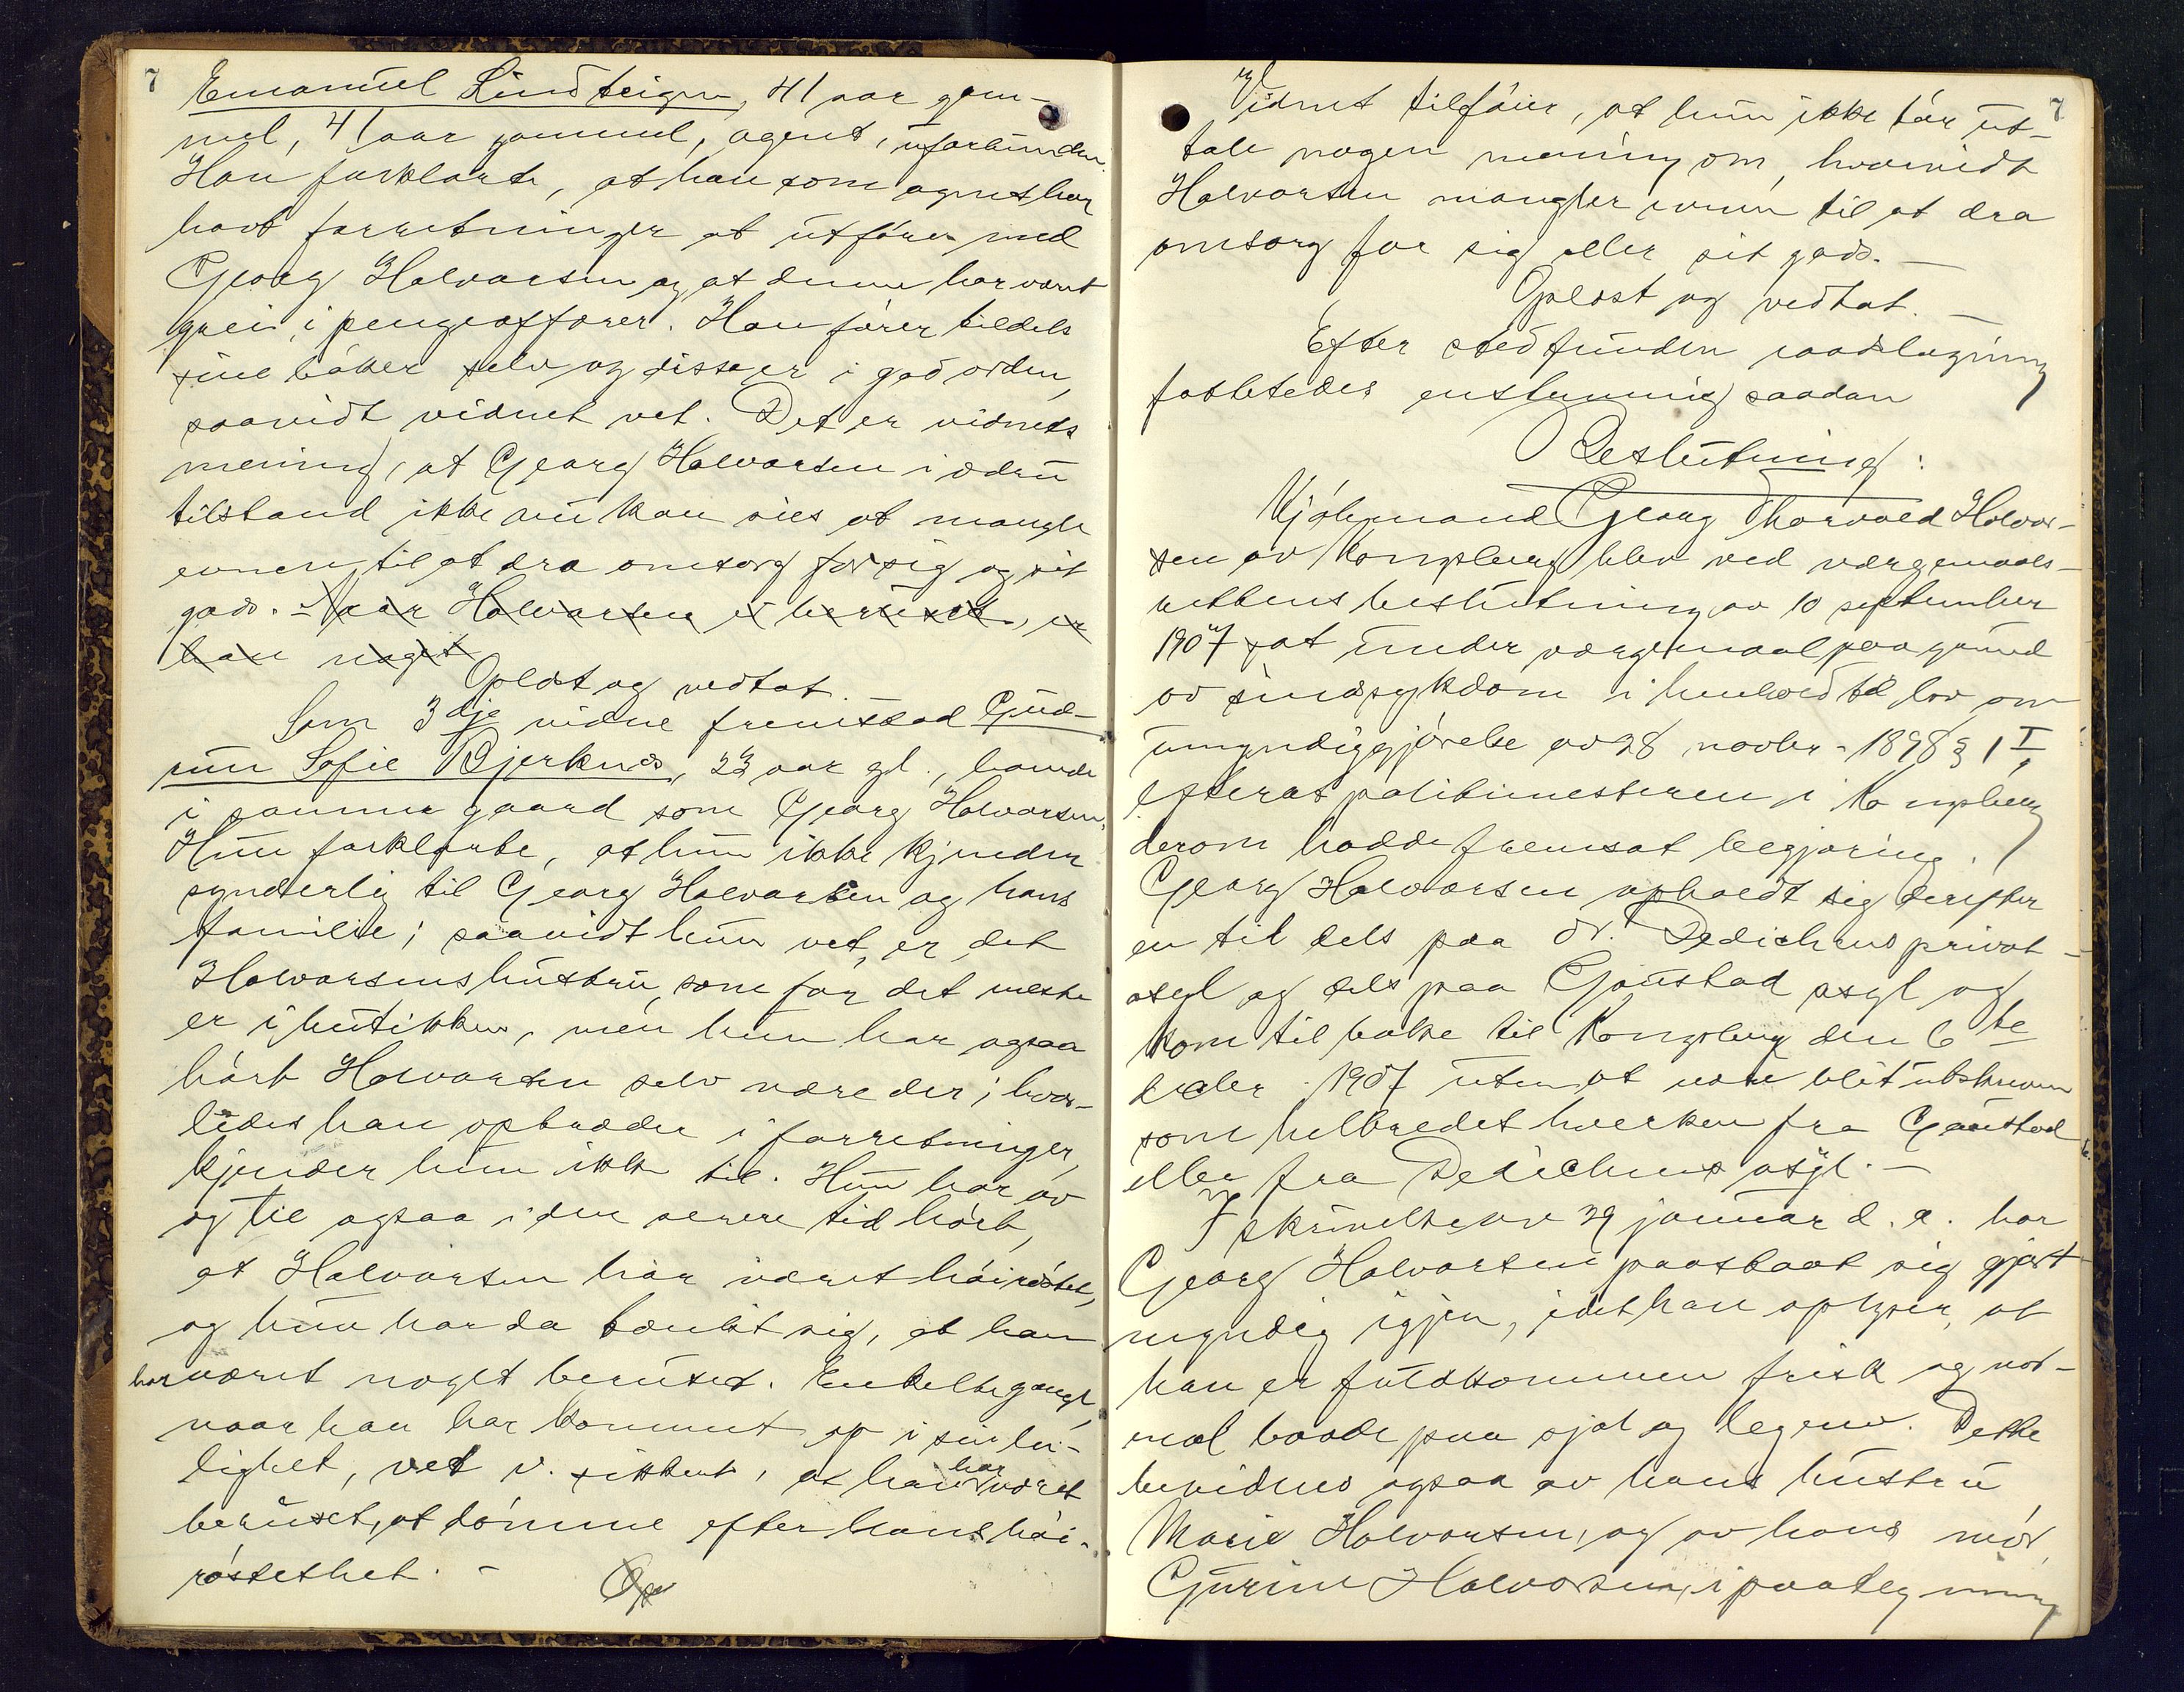 7
Emanuel Lindteigen, 41 aar gam-
mel, 41 aar gammel, agent, uforbunden.
Han forklarte, at han som agent har
havt forretninger at utføre med
Georg Halvorsen og at denne har været
grei i pengeaffærer. Han fører tildels
sine bøker selv og disse er i god orden,
saavidt vidnet vet. Det er vidnets
mening, at Georg Halvorsen i ædru
tilstand ikke nu kan sies at mangle
evnen til at dra omsorg for sig og sit
gods. – Naar Halvorsen er beruset, er
han noget
Oplæst og vedtat. –
Som 3dje vidne fremstod Gud-
run Sofie Bjerknes, 23 aar gl., boende
i samme gaard som Georg Halvorsen.
Hun forklarte, at hun ikke kjender
synderlig til Georg Halvorsen og hans
familie; saavidt hun vet, er det
Halvorsens hustru, som for det meste
er i butikken, men hun har ogsaa
hørt Halvorsen selv være der; hvor-
ledes han optræder i forretninger,
kjender hun ikke til. Hun har av
og til ogsaa i den senere tid hørt,
at Halvorsen har været høirøstet,
og hun har da tænkt sig, at han
har været noget beruset. Enkelte gange,
naar han har kommet op i sin lei-
lighet, vet v. sikkert, at han har været
beruset, at dømme efter hans høi-
røstethet. –
Op
7
Vidnet tilføier, at hun ikke tør ut-
tale nogen mening om, hvorvidt
Halvorsen mangler evnen til at dra
omsorg for sig eller sit gods. –
Oplæst og vedtat. –
Efter stedfunden raadslagning
fattedes enstemmig saadan
Beslutning:
Kjøbmand Georg Thorvald Halvor-
sen av Kongsberg blev ved værgemaals-
rettens beslutning av 10 september
1907 sat under værgemaal paa grund
av sindssykdom i henhold til lov om
umyndiggjørelse av 28 novbr. 1898 § 1 I,
efterat politimesteren i Kongsberg
derom hadde fremsat begjæring.
Georg Halvorsen opholdt sig derefter
en tid dels paa dr. Dedichens privat-
asyl og dels paa Gaustad asyl og
kom tilbake til Kongsberg den 6te
decbr. 1907 uten at være blit utskreven
som helbredet hverken fra Gaustad
eller fra Dedichens asyl. –
I skrivelse av 29 januar d. a. har
Georg Halvorsen paastaat sig gjort
myndig igjen, idet han oplyser, at
han er fuldkommen frisk og nor-
mal baade paa sjæl og legeme. Dette
bevidnes ogsaa av hans hustru
Marie Halvorsen, og av hans mor,
Gurine Halvorsen, i paategning